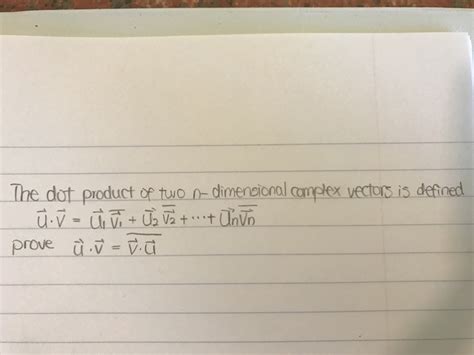 The dot product of two n-dimensional complex vectors is defined
$\vec{u} \cdot \vec{v} = \vec{u}_1 \overline{\vec{v}_1} + \vec{u}_2 \overline{\vec{v}_2} + \cdots + \vec{u}_n \overline{\vec{v}_n}$
prove $\vec{u} \cdot \vec{v} = \overline{\vec{v} \cdot \vec{u}}$